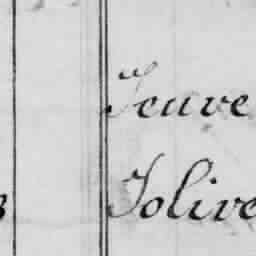 Jeuve
Jolive